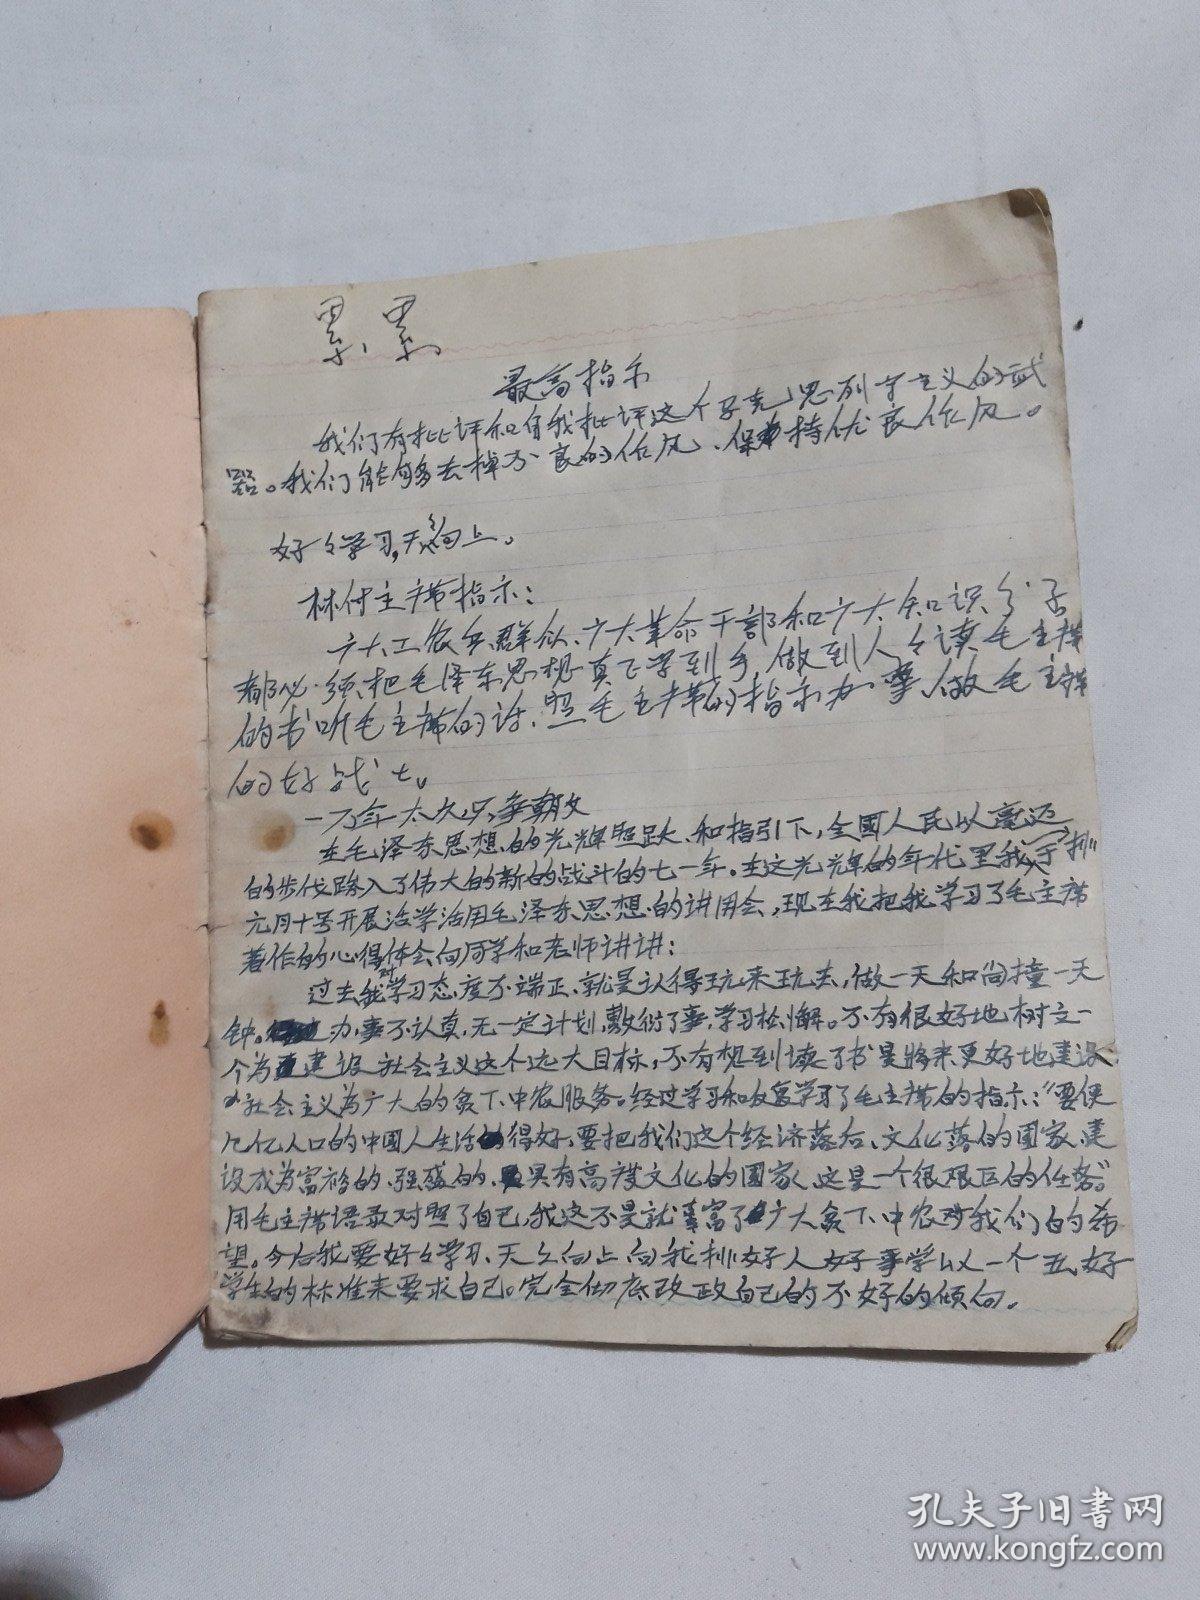 累、累、
最高指示
我们有批评和自我批评这个马克思列宁主义的武
器。我们能够去掉不良的作风、保持优良作风。
好々学习,天々向上。
林付主席指示:
广大工农兵群众、广大革命干部和广大知识分子
都必须把毛泽东思想真正学到手,做到人々读毛主席
的书听毛主席的话、照毛主席的指示办事、做毛主席
的好战士。
一万年太久只争朝夕
在毛泽东思想的光辉照跃和指引下,全國人民以豪迈
的步伐踏入了伟大的新的战斗的七一年。在这光辉的年代里我
元月十号开展活学活用毛泽东思想的讲用会,现在我把我学习了毛主席
著作的心得体会向同学和老师讲讲:
过去我对学习态度不端正、就是认得玩来玩去,做一天和尚撞一天
钟。办事不认真,无一定计划,敷衍了事,学习松懈。不有很好地树立一
个为建设社会主义这个远大目标,不有想到读了书是将来更好地建设
社会主义为广大的贫下中农服务。经过学习和反复学习了毛主席的指示:“要使
几亿人口的中國人生活得好,要把我们这个经济落后、文化落的國家、建
设成为富裕的、强盛的、具有高度文化的國家、这是一个很艰巨的任务。”
用毛主席语录对照了自己,我这不是就辜富了广大贫下中农对我们的希
望。今后我要好々学习、天々向上向我排好人好事学以一个五好
学生的标准来要求自己。完全彻底改政自己的不好的倾向。
孔夫子旧书网
www.kongfz.com